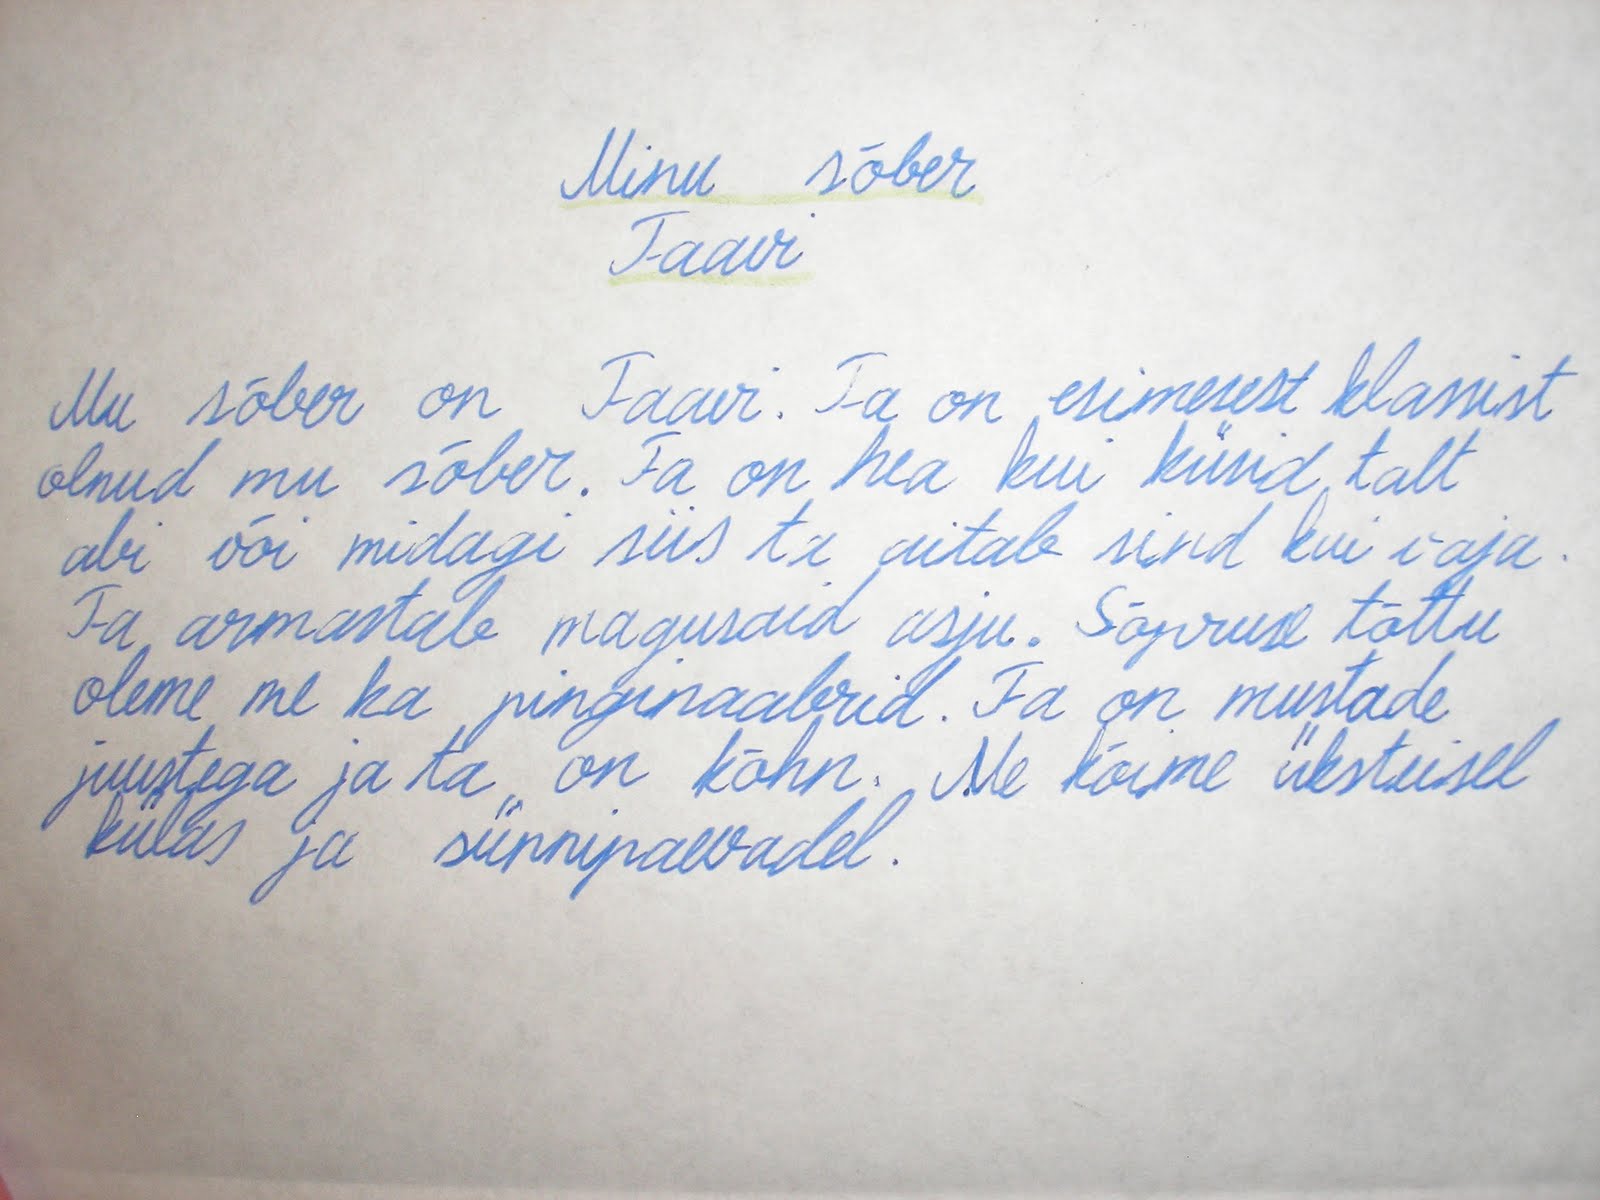 Minu sõber
Taavi
Mu sõber on Taavi. Ta on esimesest klassist
olnud mu sõber. Ta on hea kui küsid talt
abi või midagi siis ta aitab sind kui vaja.
Ta armastab magusaid asju. Sõpruse tõttu
oleme me ka pinginaabrid. Ta on mustade
juustega ja ta on kõhn. Me kõime üksteisel
külas ja sünnipaevadel.